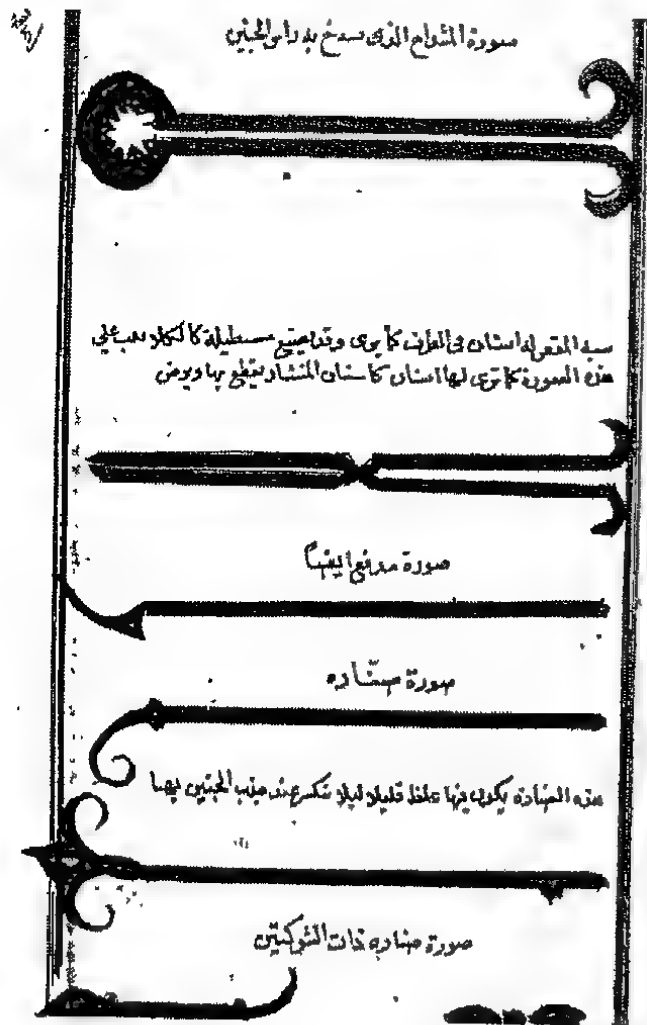 صورة المشداخ الذى يشدخ به راس الجنين
شبه المقص له اسنان فى الطرف كما يرى وقد يصنع مستطيلة كالكلاليب على
هذه الصورة كما ترى لها اسنان كاسنان المنشار يقطع بها ويرض
صورة مدفع ايضا
صورة صناره
هذه الصنارة يكون فيها غلظ قليلا ليلا تنكسر عند جذب الجنين بها
صورة صناره ذات الشوكتين